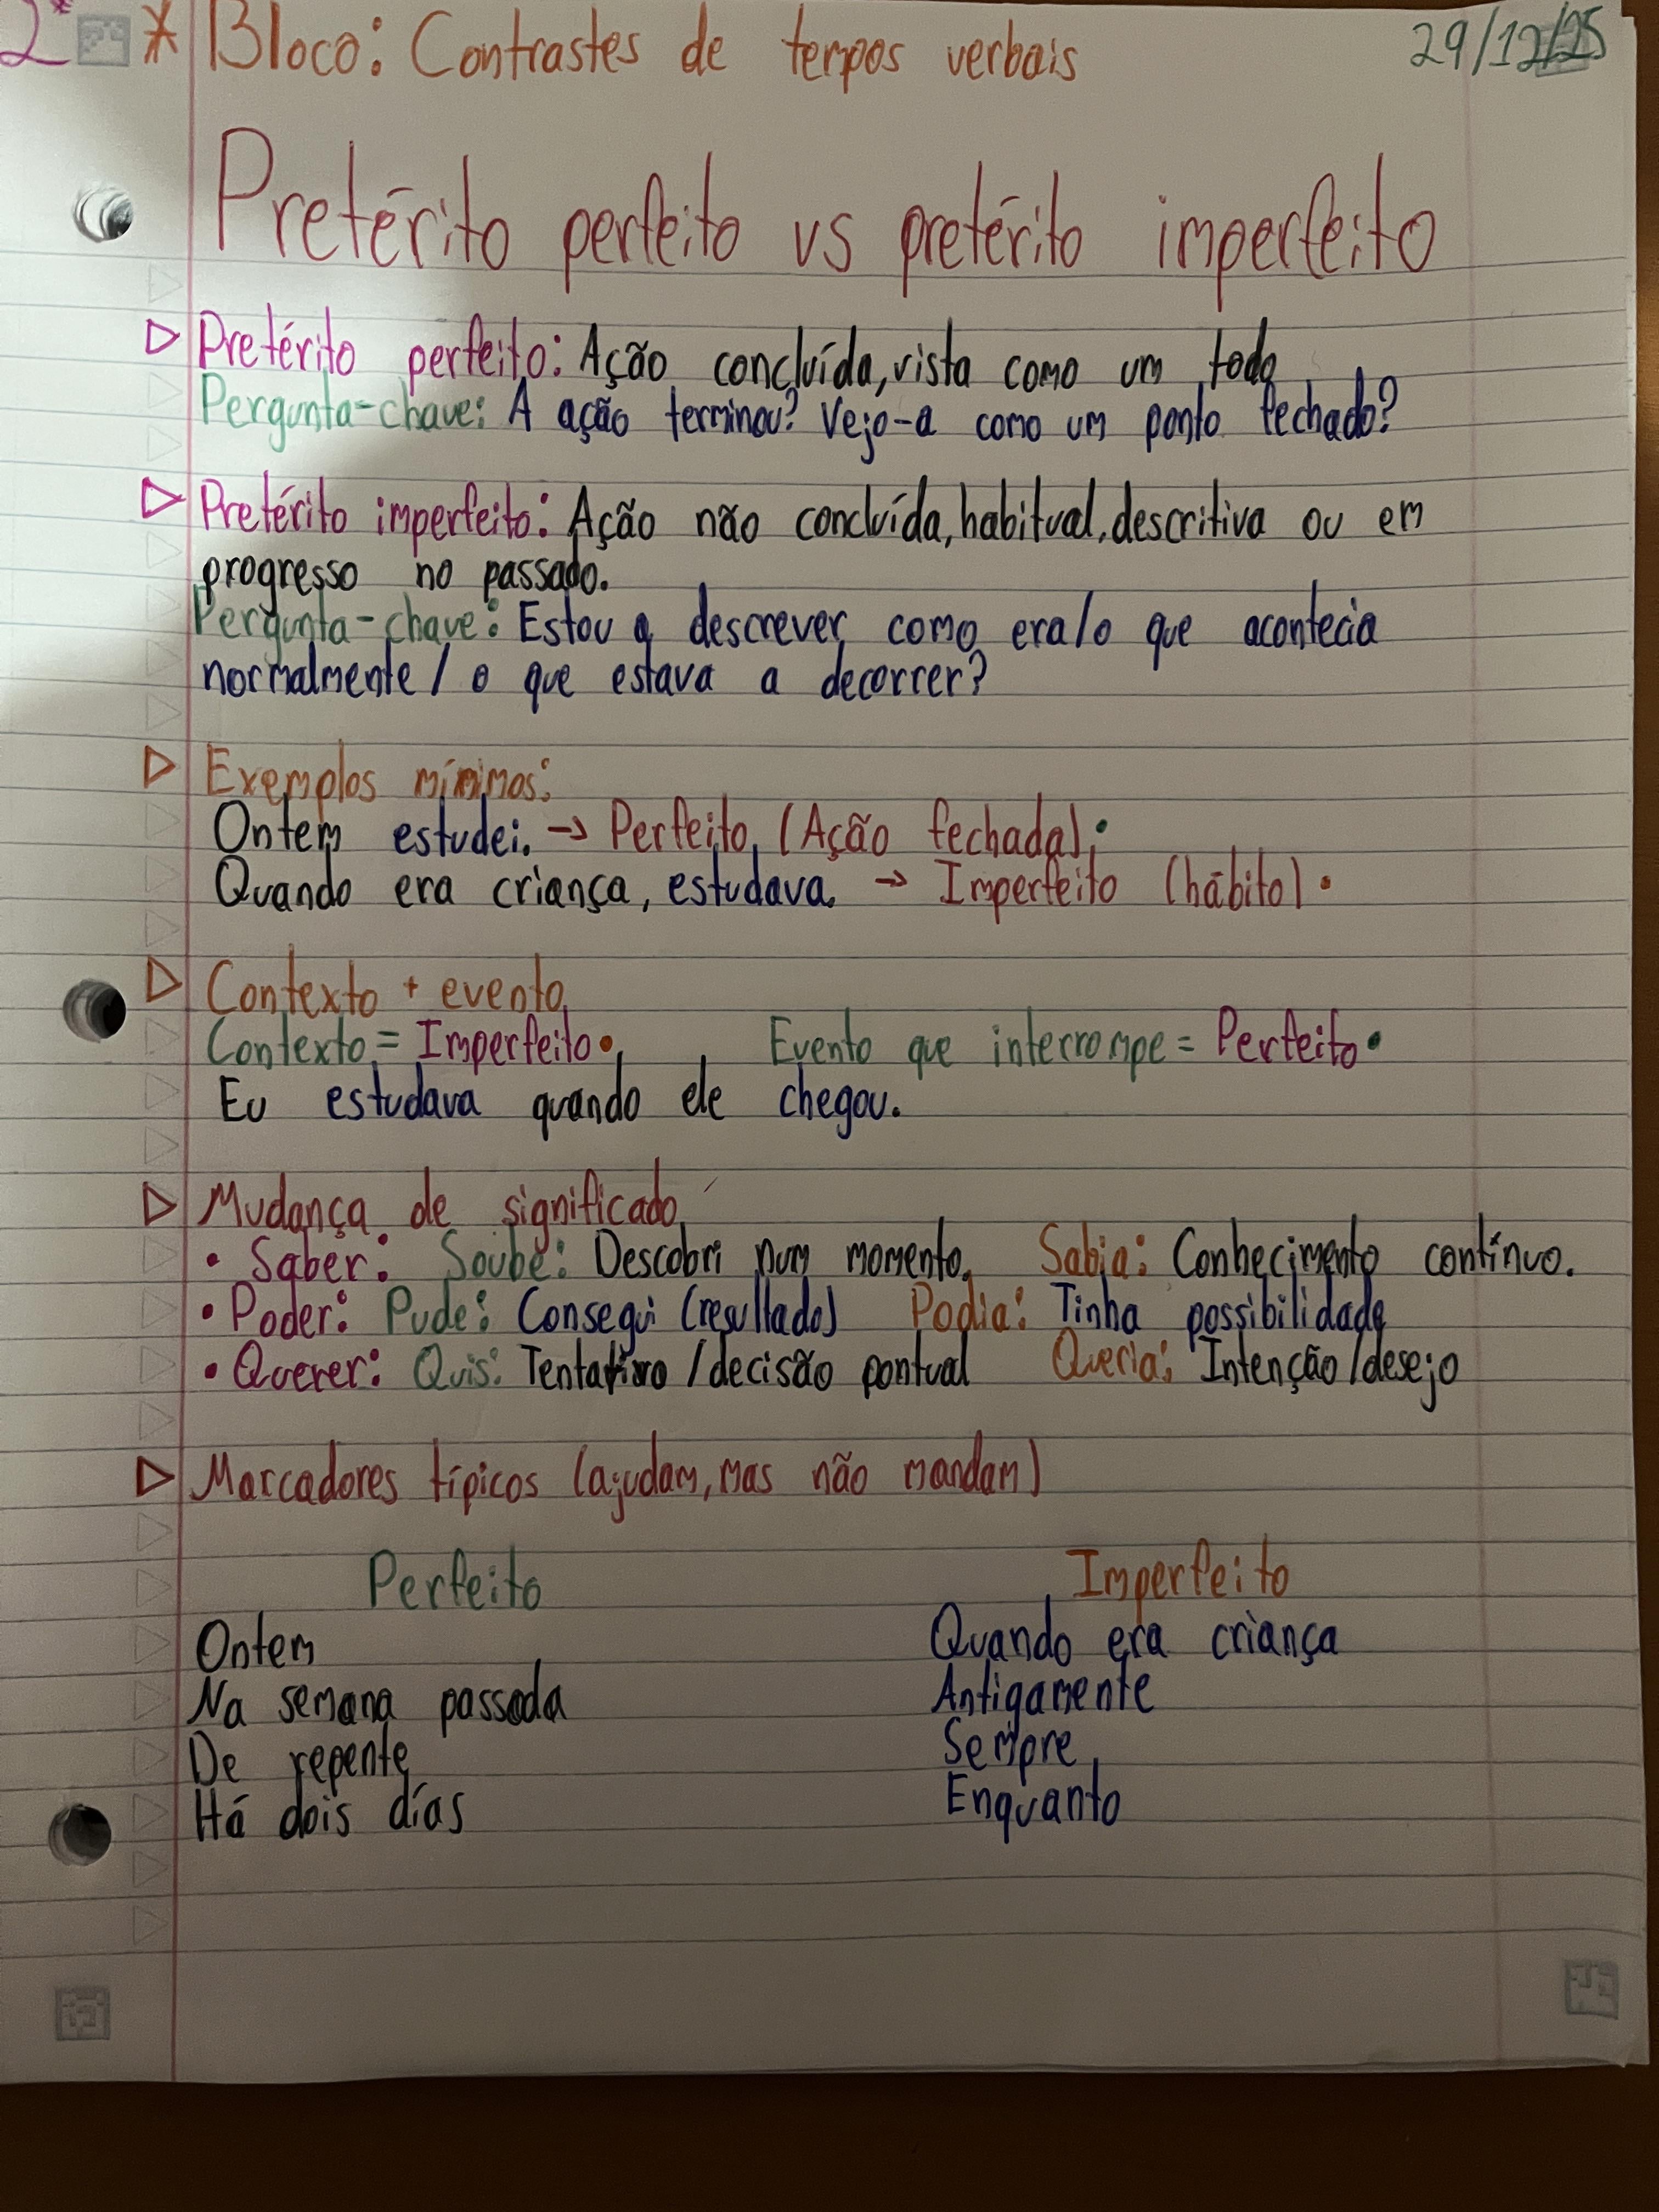 2* * Bloco: Contrastes de tempos verbais 29/12/25
Pretérito perfeito vs pretérito imperfeito
Pretérito perfeito: Ação concluída, vista como um todo
Pergunta-chave: A ação terminou? Vejo-a como um ponto fechado?
Pretérito imperfeito: Ação não concluída, habitual, descritiva ou em
progresso no passado.
Pergunta-chave: Estou a descrever como era/o que acontecia
normalmente / o que estava a decorrer?
Exemplos mínimos:
Ontem estudei. → Perfeito (Ação fechada).
Quando era criança, estudava. → Imperfeito (hábito).
Contexto + evento
Contexto = Imperfeito. Evento que interrompe = Perfeito.
Eu estudava quando ele chegou.
Mudança de significado
• Saber: Soube: Descobri num momento. Sabia: Conhecimento contínuo.
• Poder: Pude: Consegui (resultado) Podia: Tinha possibilidade
• Querer: Quis: /decisão pontual Queria: Intenção/desejo
Marcadores típicos (ajudam, mas não mandam)
Perfeito Imperfeito
Ontem Quando era criança
Na semana passada Antigamente
De repente Sempre
Há dois días Enquanto